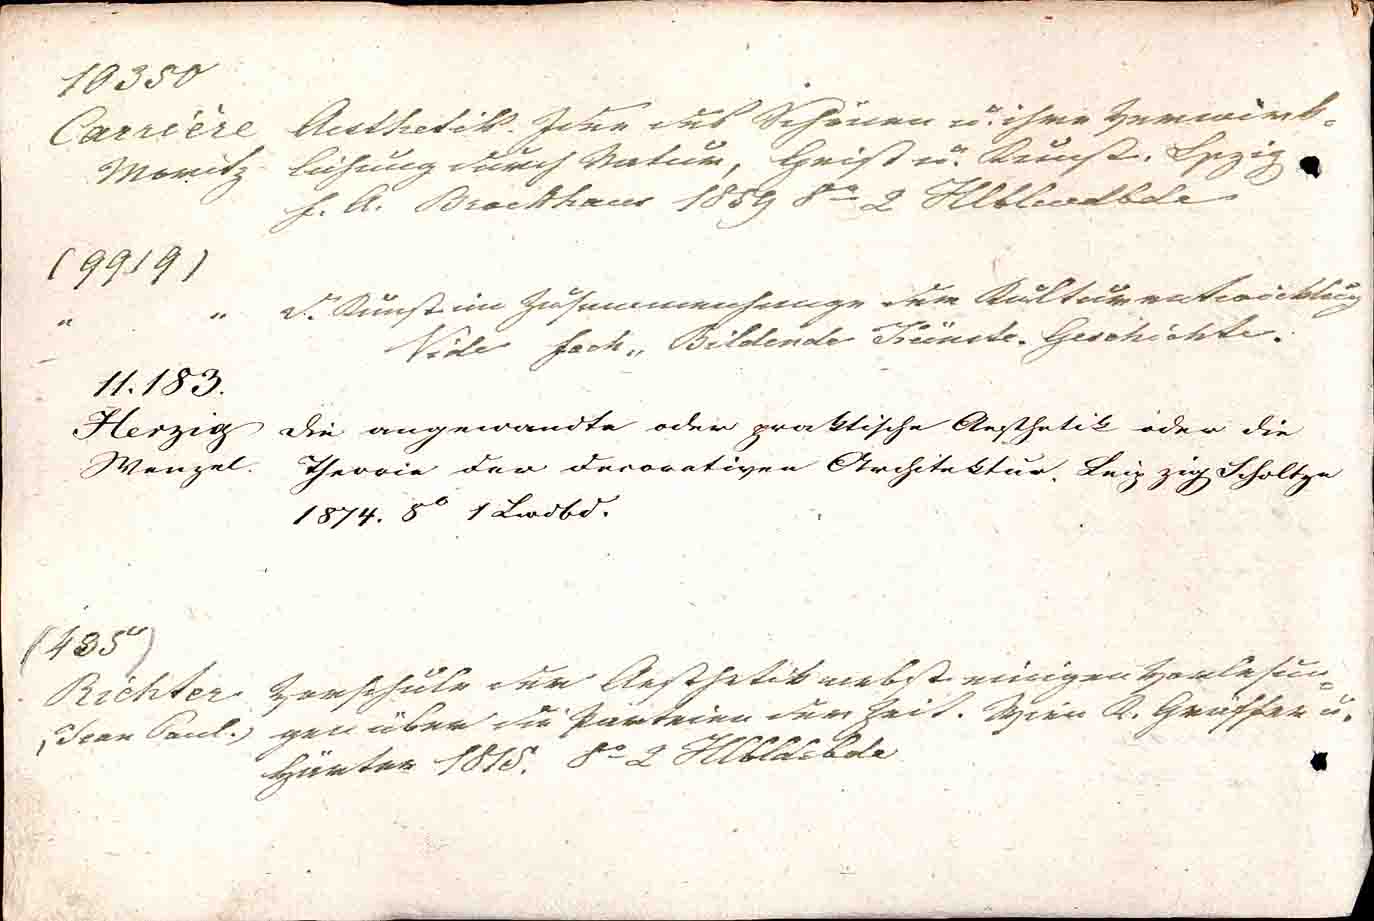 10350
Carrière Aesthetik. Idee des Schönen u. ihre Verwirk-
Moritz lichung durch Natur, Geist u. Kunst. Lpzig
F. A. Brockhaus 1859 8° 2 Hlblwdbde
(9919)
" " d. Kunst im Zusammenhange der Kulturentwicklung
Vide Fach „ Bildende Künste. Geschichte.
11.183.
Herzig die angewandte oder praktische Aesthetik oder die
Wenzel. Theorie der decorativen Architektur. Leipzig Scholtze
1874. 8° 1 Lwdbd.
(435)
Richter Vorschule der Aesthetik nebst einigen Vorlesun-
(Jean Paul.) gen über die Parteien der Zeit. Wien K. Gräffer u.
Härter 1815. 8° 2 Hlbldbde